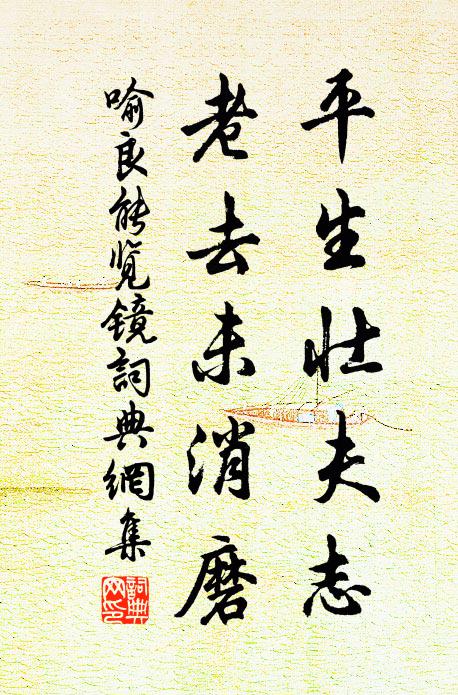 平生壮夫志
老去未消磨
喻良能覽镜詞典網集
詞典网印